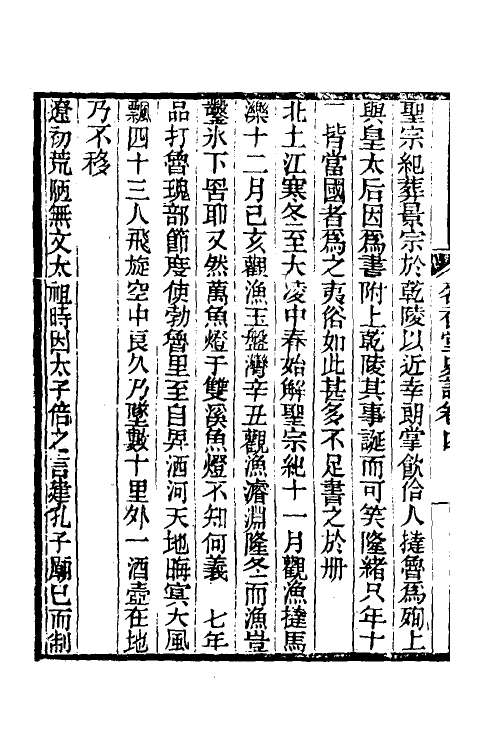 聖宗紀葬景宗於乾陵以近幸朗掌飲伶人撻魯為殉上
與皇太后因為書附上乾陵其事誕而可笑隆緒只年十
二皆當國者為之夷俗如此甚多不足書之於冊
北土江寒冬至大凌中春始解聖宗紀十一月觀漁撻馬
濼十二月己亥觀漁玉盤灣辛丑觀漁濬淵隆冬而漁豈
鑿氷下罟耶又然萬魚燈于雙溪魚燈不知何義　七年
品打魯瑰部節度使勃魯里至自鼻洒河天地晦冥大風
飄四十三人飛旋空中良久乃墜數十里外一酒壺在地
乃不移
遼初荒陋無文太祖時因太子倍之言建孔子廟已而制